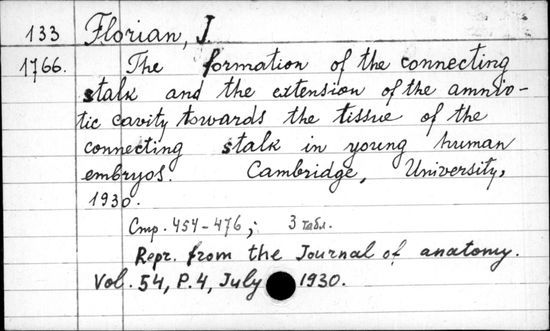 133 Florian, J.
1766. The formation of the connecting
stalk and the extension of the amnio-
tic cavity towards the tissue of the
connecting stalk in young human
embryos. Cambridge, University,
1930.
Стр. 454-476; 3 табл.
Repr. from the Journal of anatomy.
Vol. 54, P. 4, July 1930.